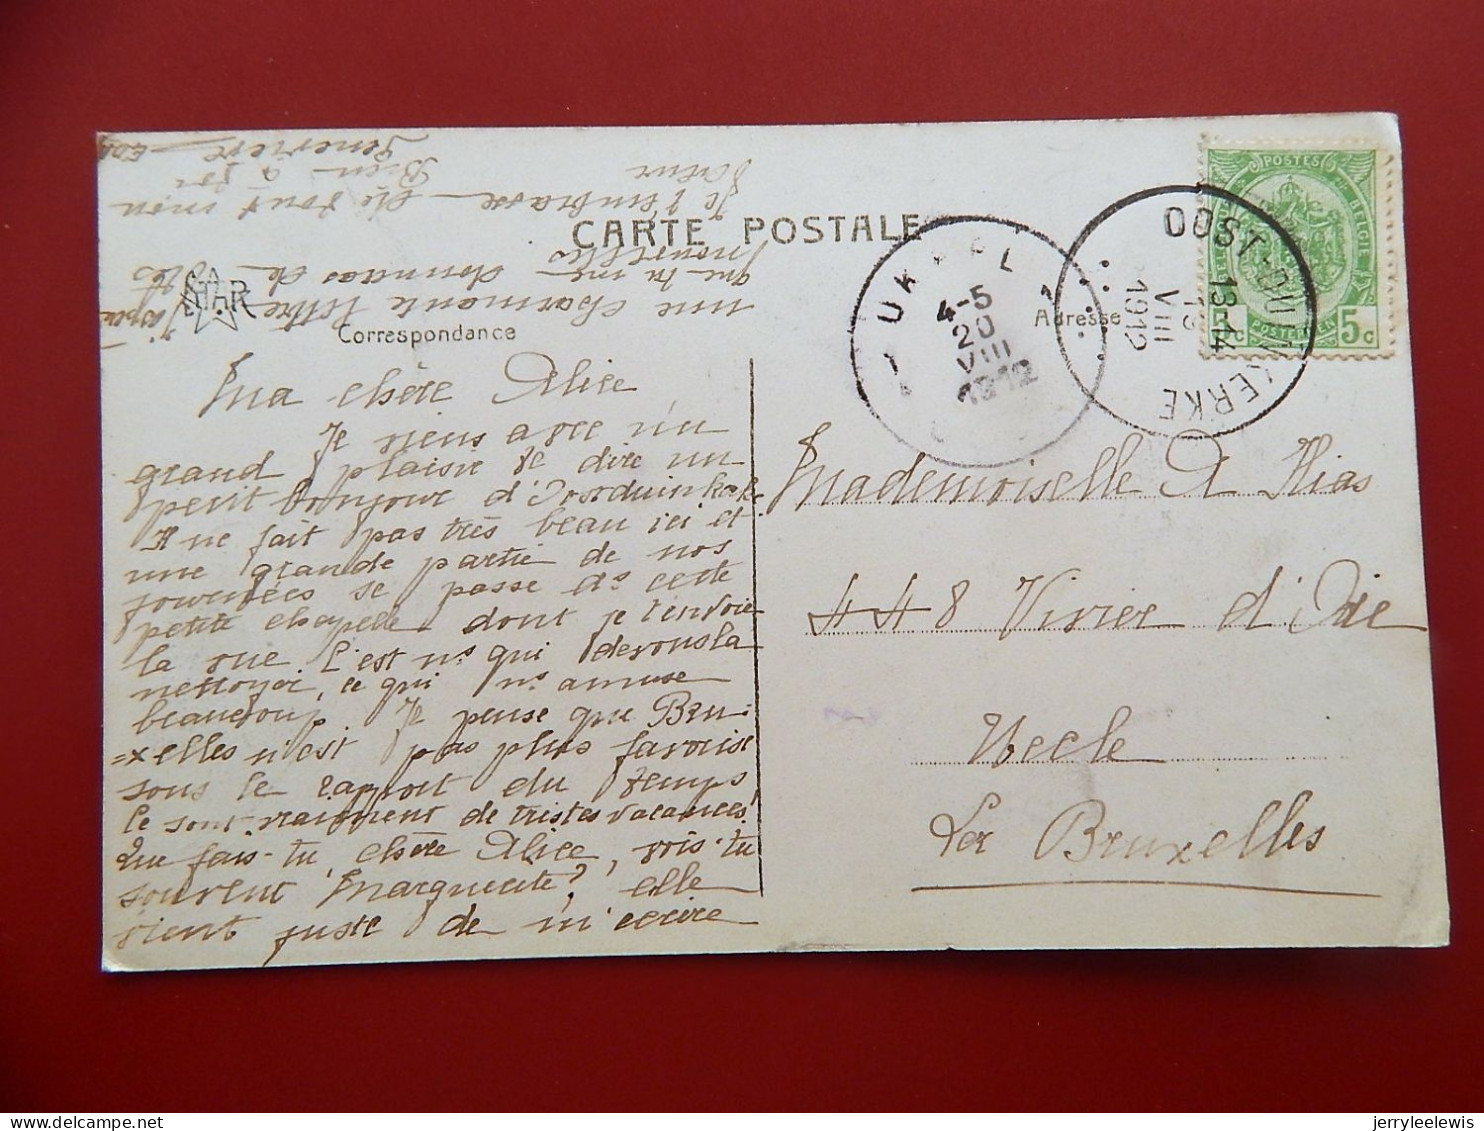 CARTE POSTALE
STAR
Correspondance
Adresse
Ma chère Alice
Je viens avec un
grand plaisir te dire un
petit bonjour d'Oostduinkerke
Il ne fait pas très beau ici et
une grande partie de nos
journées se passe ds cette
petite chapelle dont je t'envoie
la vue C'est ns qui devons la
nettoyer, ce qui ns amuse
beaucoup. Je pense que Bru-
xelles n'est pas plus favorisé
sous le rapport du temps
Ce sont vraiment de tristes vacances!
Que fais-tu, chère Alice, vois-tu
souvent Marguerite? elle
vient juste de m'écrire
une charmante lettre
que tu me donnes de
tes nouvelles
Je t'embrasse de tout mon
cœur
Bien à toi
Geneviève
Mademoiselle A Hias
448 Vivier d'Oie
Uccle
Lez Bruxelles
UKKEL 1
4-5
20
VIII
1912
OOST-DUINKERKE
13-14
VIII
1912
POSTES
BELGIQUE
BELGIË
POSTERIJEN
5c
5c
jerryleelewis